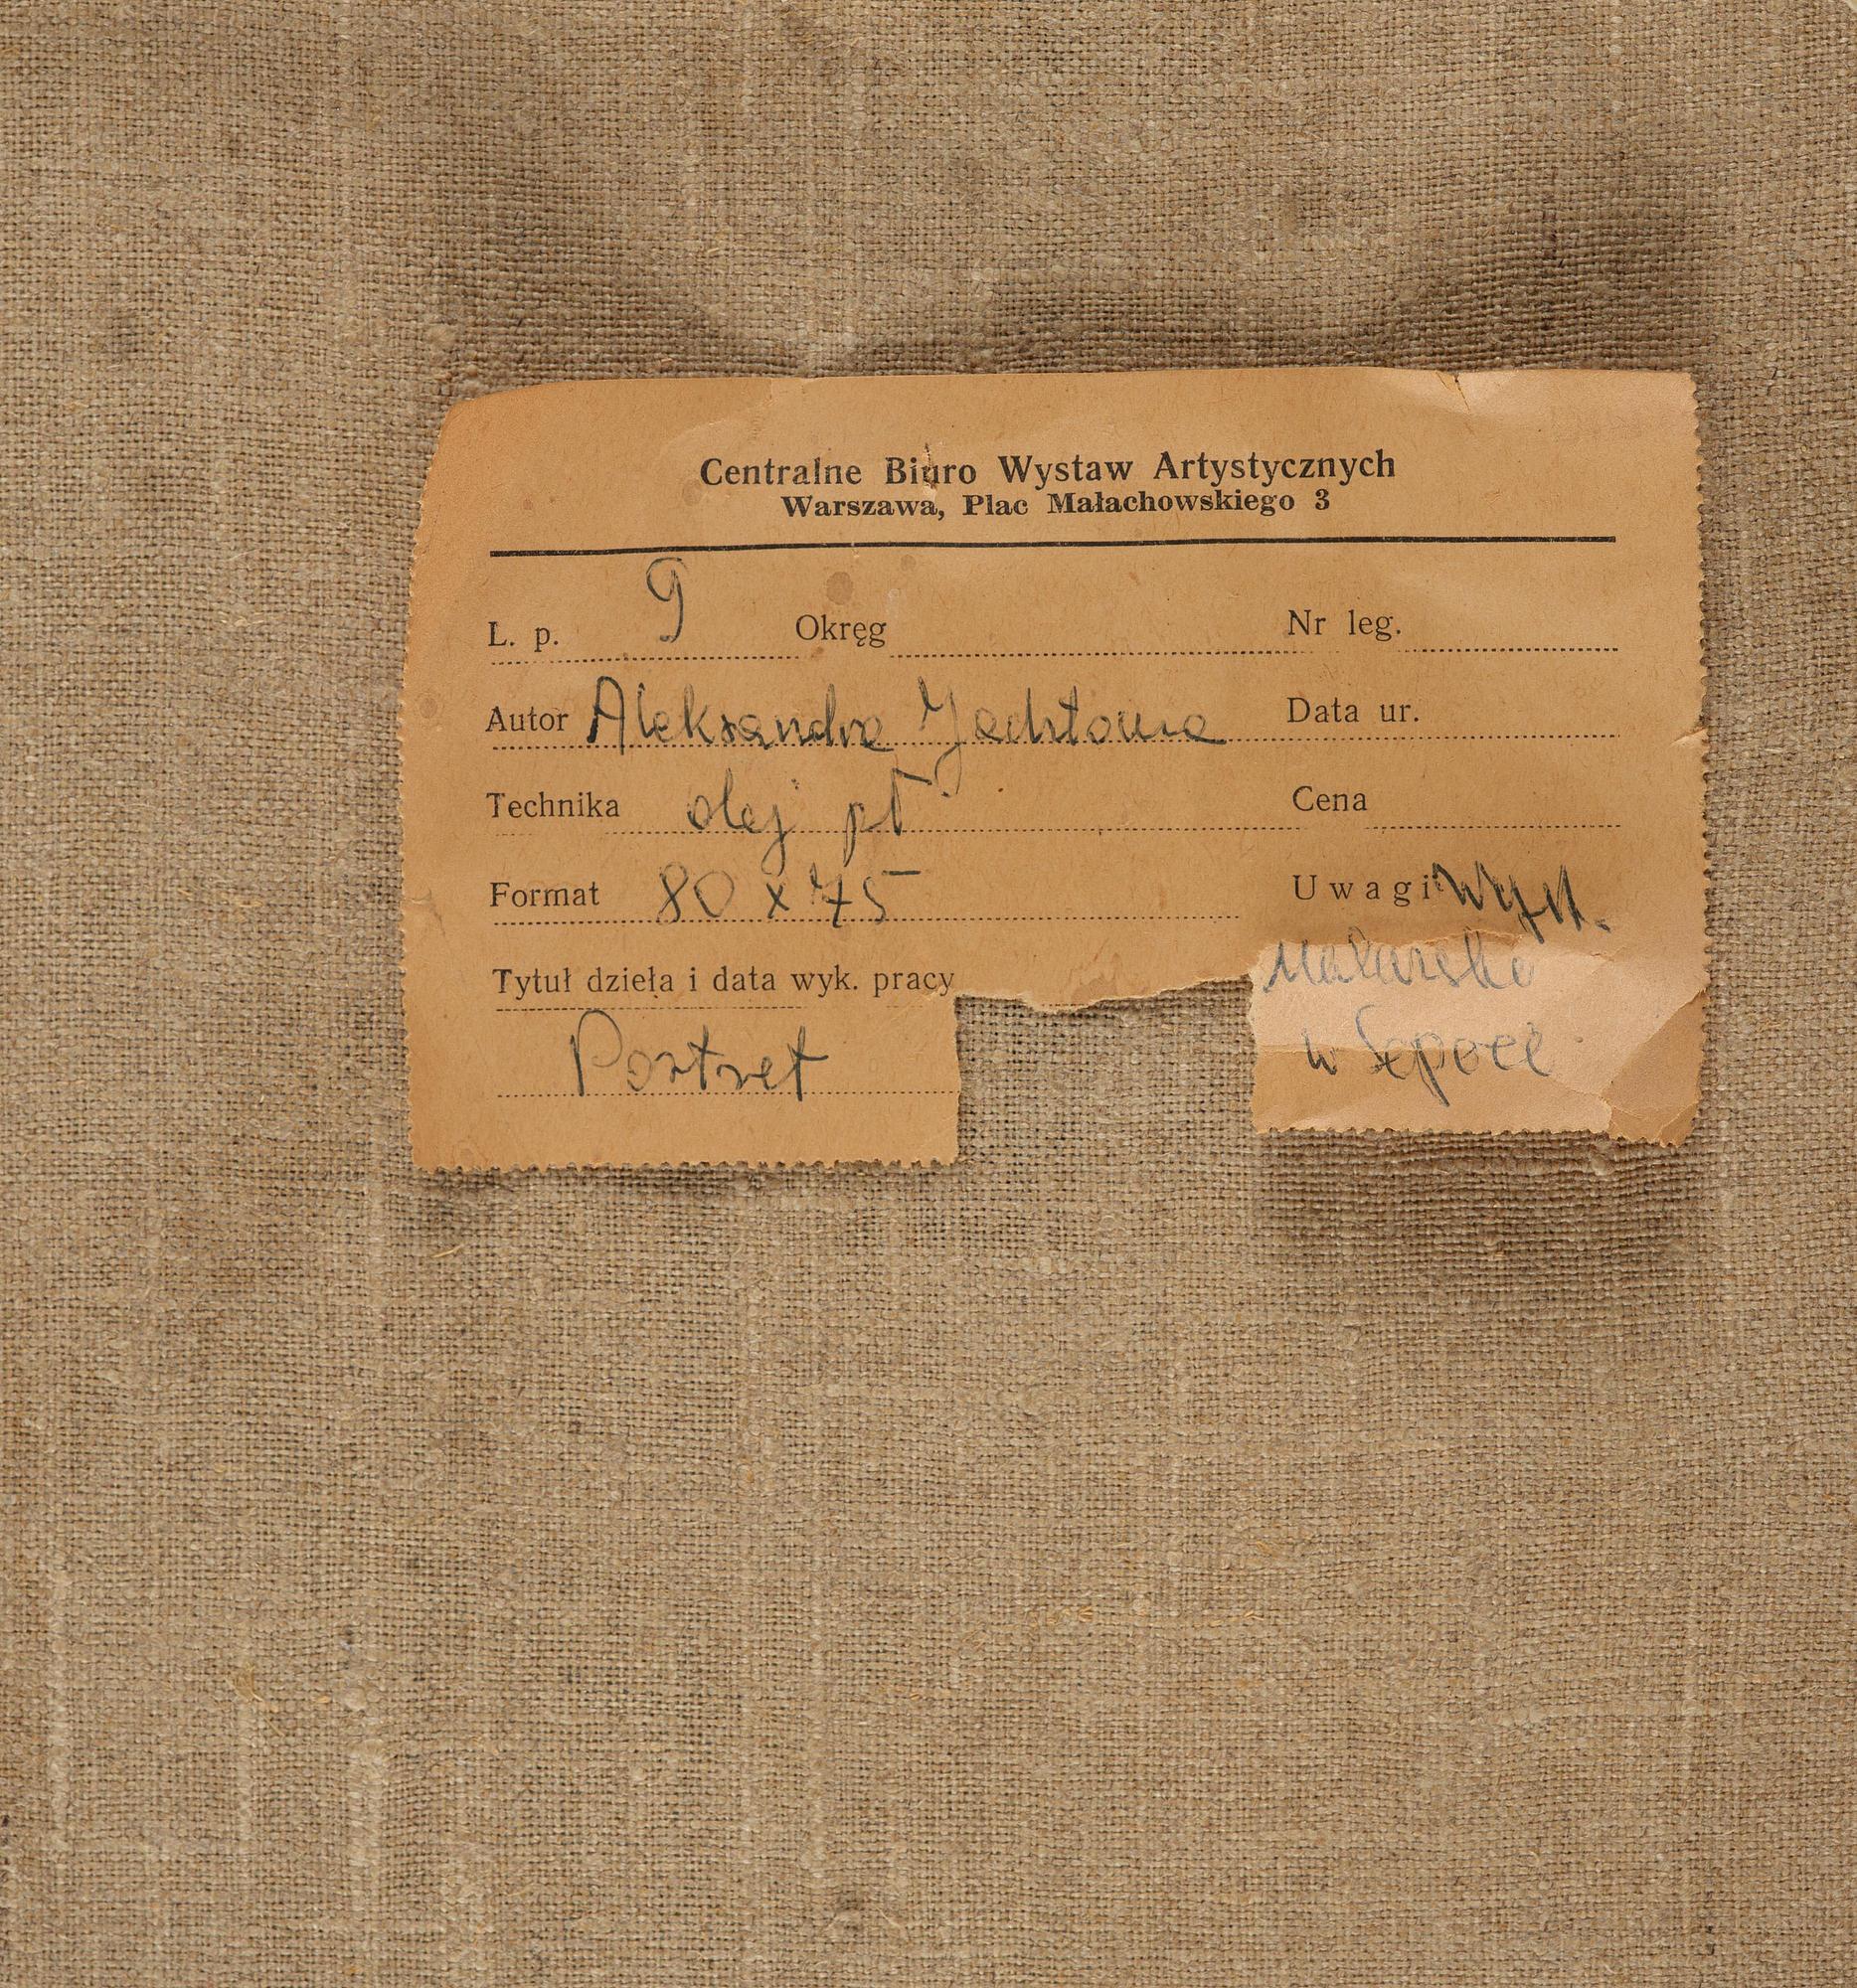 Centralne Biuro Wystaw Artystycznych
Warszawa, Plac Małachowskiego 3
L. p. 9 Okręg Nr leg.
Autor Aleksandra Data ur.
Technika olej pł Cena
Format 80 x 75 Uwagi Wyst.
Malarska
Tytuł dzieła i data wyk. pracy
w
Portret